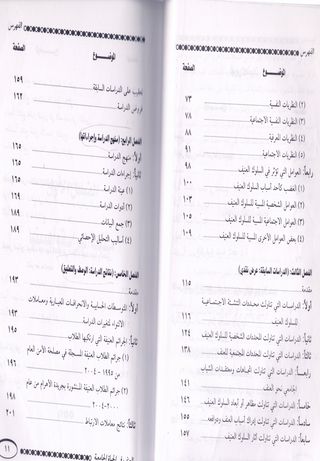 الفهرس
الموضوع
الصفحة
(٢) النظريات النفسية
٧٣
(٣) النظريات النفسية الاجتماعية
٧٨
(٤) النظريات المعرفية
٨٨
(٥) النظريات الاجتماعية
٩١
رابعاً: العوامل التي تؤثر في السلوك العنيف
٩٨
(١) الغضب كأحد أسباب السلوك العنيف
١٠٠
(٢) العوامل الشخصية المسببة للسلوك العنيف
١٠٣
(٣) العوامل الاجتماعية المسببة للسلوك العنيف
١٠٨
(٤) بعض العوامل الأخرى المسببة للسلوك العنيف
١٠٩
الفصل الثالث: (الدراسات السابقة: عرض نقدي)
مقدمة
١١٥
أولاً: الدراسات التي تناولت محددات التنشئة الاجتماعية
للسلوك العنيف
١١٥
ثانياً: الدراسات التي تناولت المحددات الشخصية للسلوك العنيف
١٢٤
ثالثاً: الدراسات التي تناولت المحددات المجتمعية للعنف
١٣٨
رابعاً: الدراسات التي تناولت اتجاهات ومعتقدات الشباب
الجامعي نحو العنف
خامساً: الدراسات التي تناولت مظاهر أو أبعاد السلوك العنيف
سادساً: الدراسات التي تناولت إدراك أسباب العنف
سابعاً: الدراسات التي تناولت آثار السلوك العنيف
١٥٧
الفهرس
الموضوع
الصفحة
تعقيب على الدراسات السابقة
١٥٩
فروض الدراسة
١٦٢
الفصل الرابع: (منهج الدراسة وإجراءاتها)
أولاً: منهج الدراسة
١٦٥
ثانياً: إجراءات الدراسة
١٦٥
(١) عينة الدراسة
١٦٥
(٢) أدوات الدراسة
١٦٩
(٣) جمع البيانات
١٨٩
(٤) أساليب التحليل الإحصائي
١٨٩
الفصل الخامس: (نتائج الدراسة: الوصف والتعليق)
مقدمة
١٩٣
أولاً: المتوسطات الحسابية والانحرافات المعيارية ومعاملات
الالتواء لمتغيرات الدراسة
١٩٣
ثانياً: الجرائم العنيفة التي ارتكبها الطلاب
١٩٥
(١) جرائم الطلاب العنيفة المسجلة في مصلحة الأمن العام
من ١٩٩٥ - ٢٠٠٤
١٩٦
(٢) جرائم الطلاب العنيفة المنشورة بجريدة الأهرام من عام
٢٠٠٠-٢٠٠٤
١٩٨
ثالثاً: نتائج معاملات الارتباط
٢٠١
١١